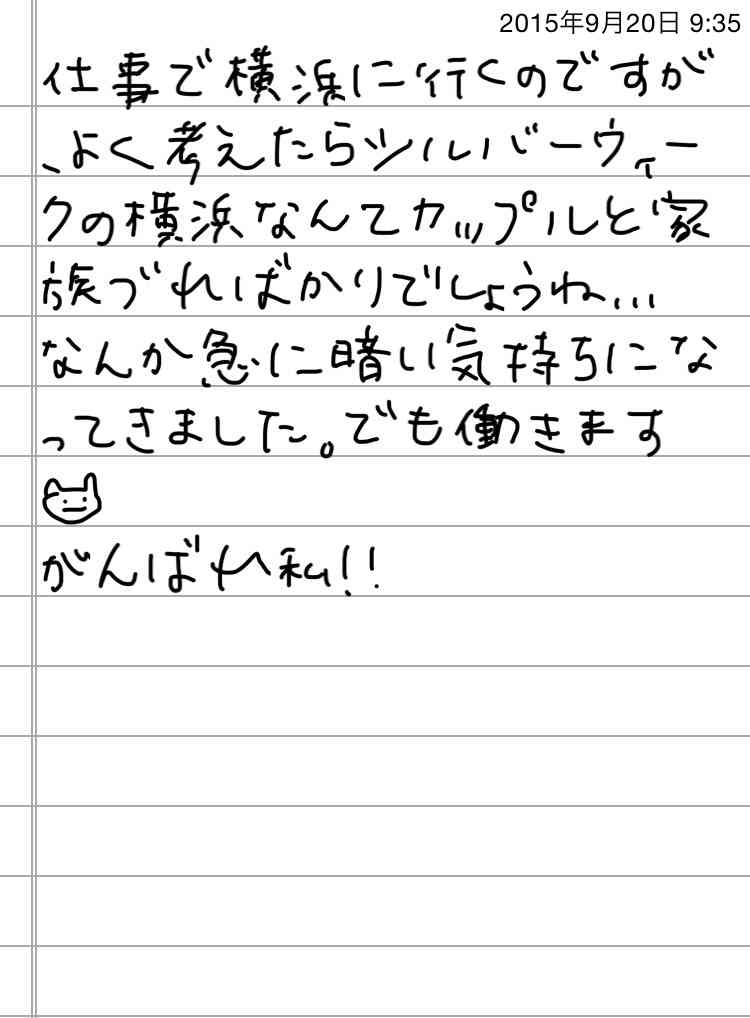 2015年9月20日 9:35
仕事で横浜に行くのですが
、よく考えたらシルバーウィー
クの横浜なんてカップルと家
族づればかりでしょうね...
なんか急に暗い気持ちにな
ってきました。でも働きます
がんばれ私!!